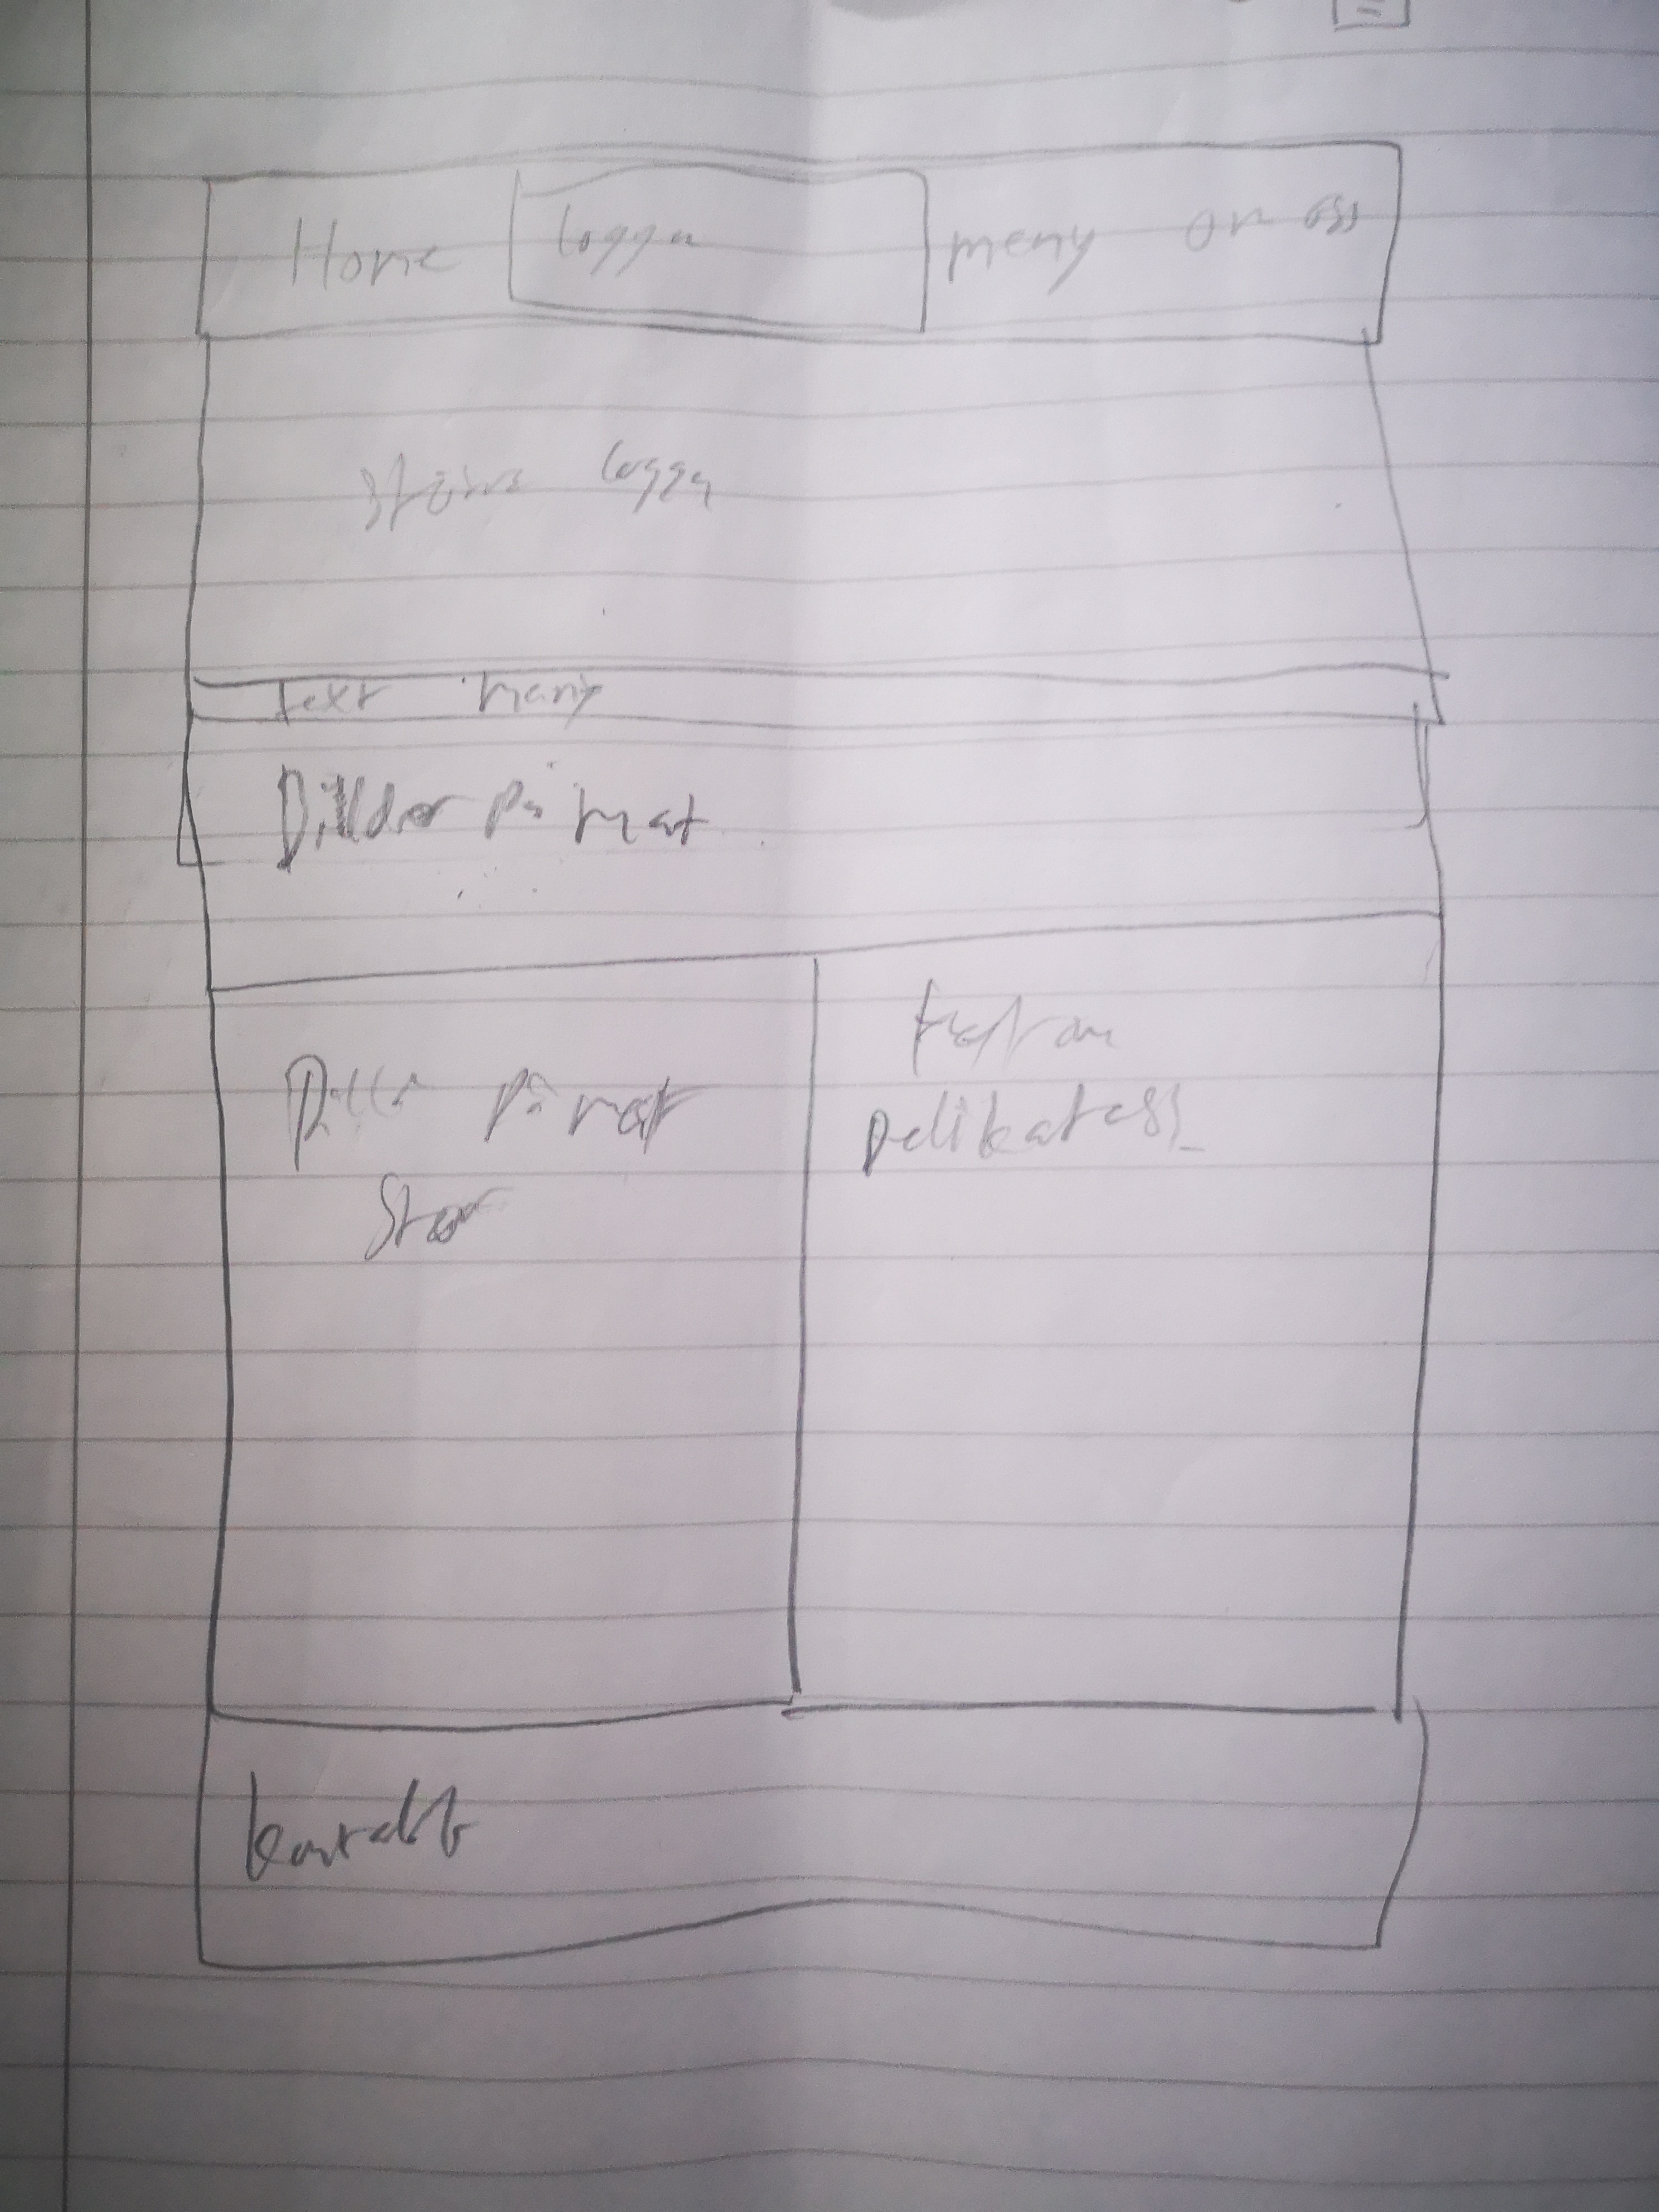 Home logga meny om oss
större logga
text meny
Bilder på mat
Bild på mat
Stor
text om
Delikatess
kontakt